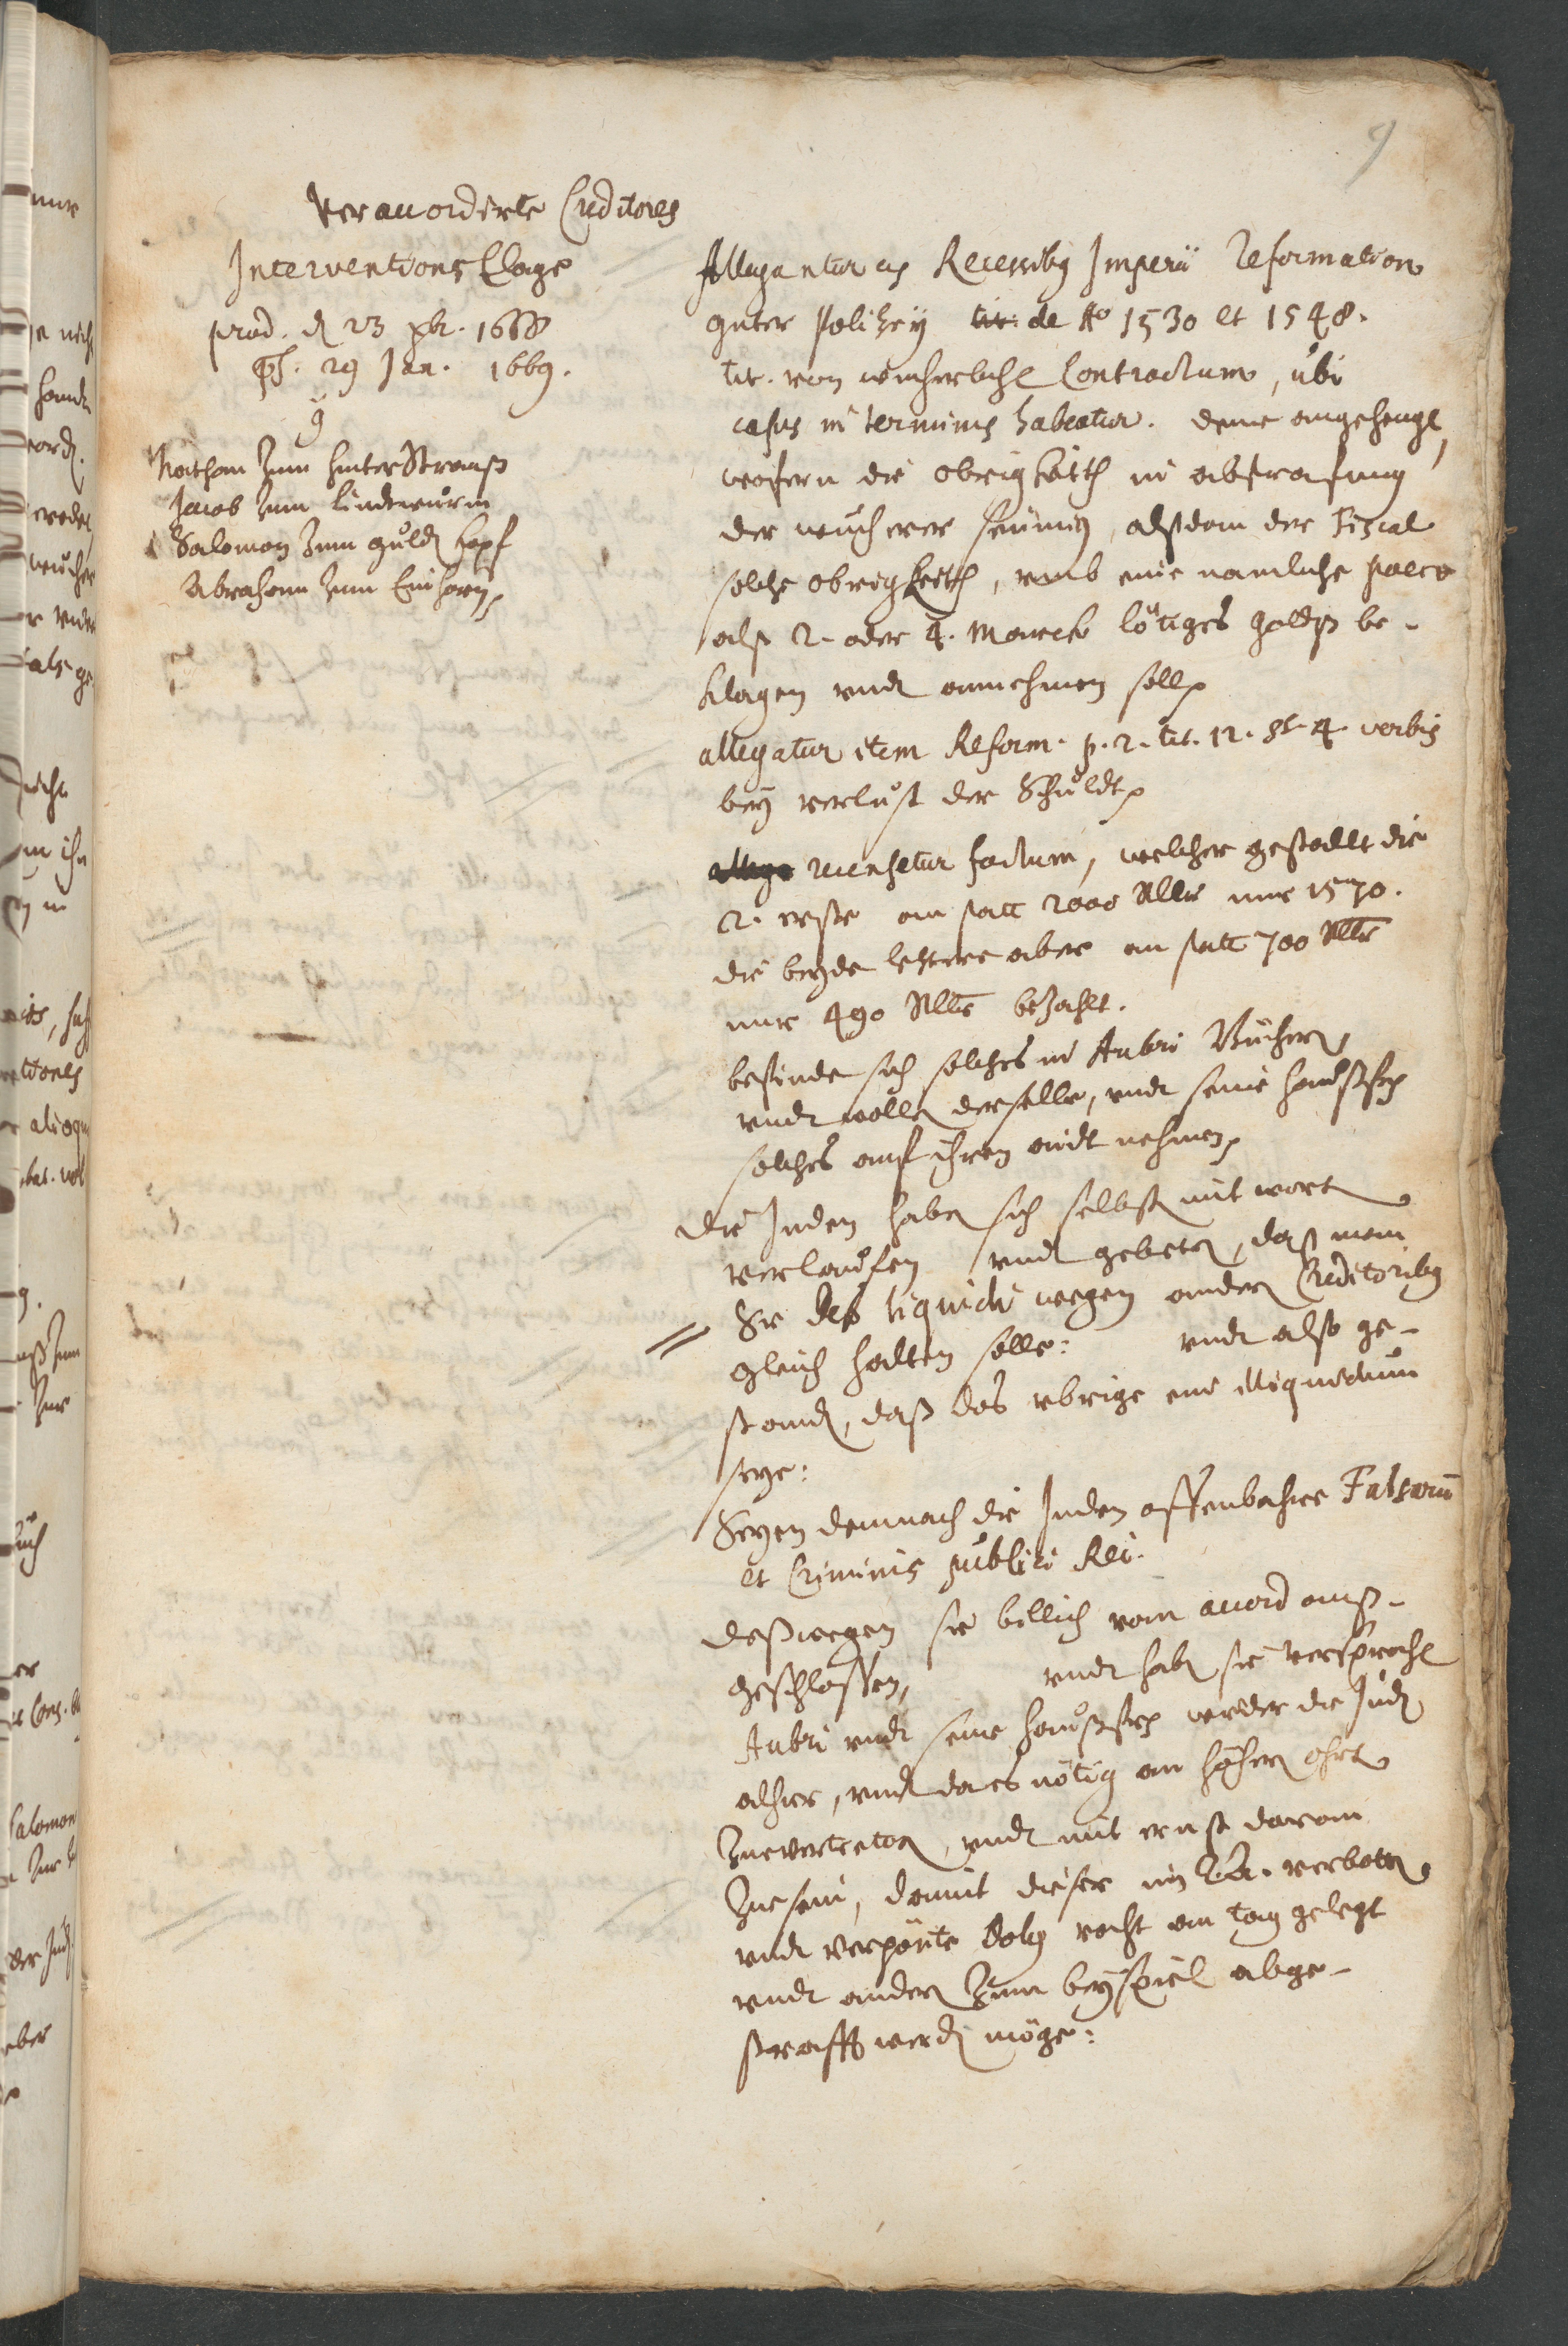 9
Veraccordirte Creditores
Interventions Clage
prod. d 23 xbr. 1668
29 Jan. 1669.
Nathan zum hinter Strauß
Jacob zum Lindtwurm
Salomon zum guld Kopf
Abraham zum Einhorn
Allegantur ex Recessibus Imperii Reformation
guter Polizey de Ao 1530 et 1548.
tit. von wucherliche Contractum, ubi
casus in terminis habeatur. deme angehengt,
wofern die obrigkeith in abstrafung
der wucherer seumig, alßdan der Fiscal
solche obrigkeith, umb eine namliche poen
alß 2. oder 4. Marck lötiges goldß be-
klagen undt annehmen soll
allegatur item Reform. p. 2. tit. 12. §. 4. verbis
bey verlust der Schuldt
recensetur factum, welcher gestallt die
2. erste an statt 2000 Rllr nur 1570.
die beyde letztere aber an statt 700 Rllr
nur 490 Rllr bezahlt.
befinde sich solches in Aubri Bücher,
undt wolle derselbe, undt seine haußfr
solches auf ihren aidt nehmen
die Juden habe sich selbst mit wort
verlauffen undt gebete, daß man
Sie deß liquidi wegen ander Creditoribus
gleich halten solle: undt also ge-
stand, daß das ubrige ein illiquidum
seye:
Seyen demnach die Juden offenbahre Falsarii
et Criminis publici Rei.
deßwegen sie billich vom accord auß-
geschlossen, undt habe sie versproche
Aubri undt seine haußfr wieder die Jude
alhier, undt da es nötig an höher ohrt
zuevertreten, undt mit ernst daran
zuesein, damit dieser im R.A. verbotte
undt verpönte dolus recht an tag gelegt
undt ander zum beyspiel abge-
strafft werde möge: